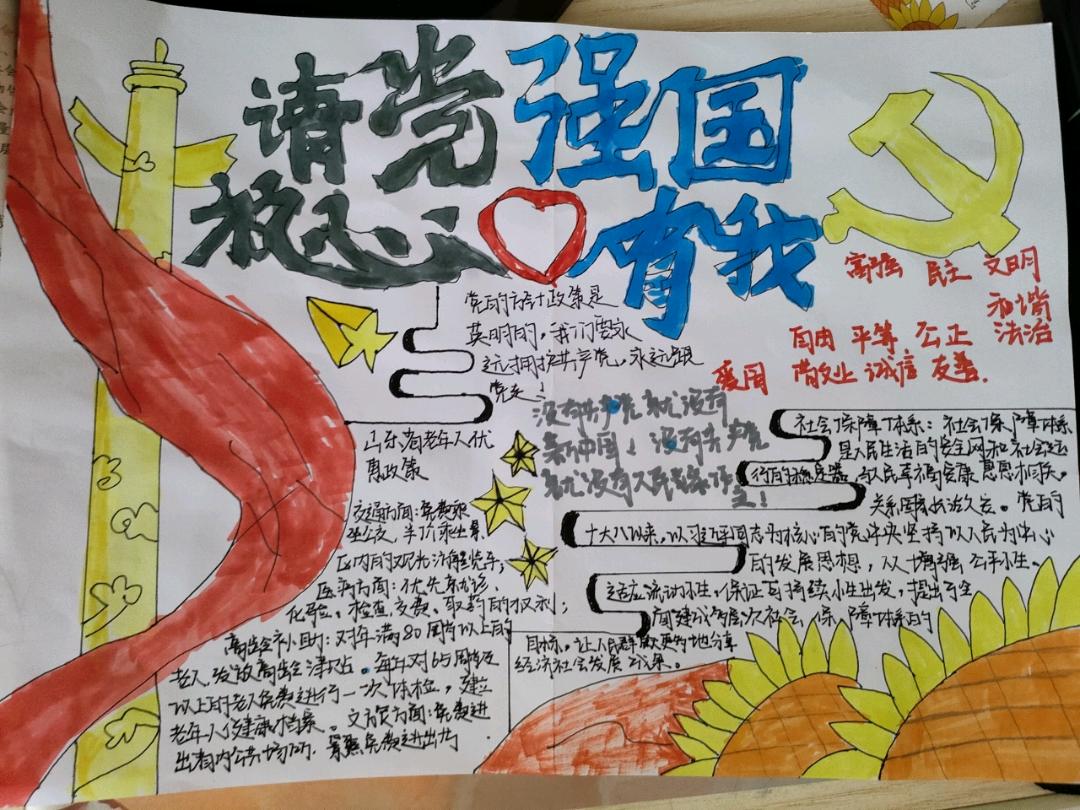 请党 强国
放心 有我
党的方针政策是
英明的，我们要永
远拥护共产党，永远跟
党走！
富强 民主 文明
和谐
自由 平等 公正 法治
爱国 敬业 诚信 友善.
没有共产党就没有
新中国！没有共产党
就没有人民幸福
山东省老年人优
惠政策
交通方面：免费乘
坐公交，半价乘坐景
区内的观光游览车；
医疗方面：优先就诊、
化验、检查、交费、取药的权利；
高龄补助：对年满80周岁以上的
老人发放高龄津贴。每年对65周岁及
以上的老人免费进行一次体检，建立
老年人健康档案。文旅方面：免费进
出省内公共场所.景点免费进出
社会保障体系：社会保障体系
是人民生活的安全网和社会运
行的稳定器，与人民幸福安康息息相关。
关系国家长治久安。党的
十八以来，以习近平同志为核心的党中央坚持以人民为中心
的发展思想，从增强公平性、
适应流动性、保证可持续性出发，提出了全
面建成多层次社会保障体系的
目标，让人民群众更好地分享
经济社会发展成果。